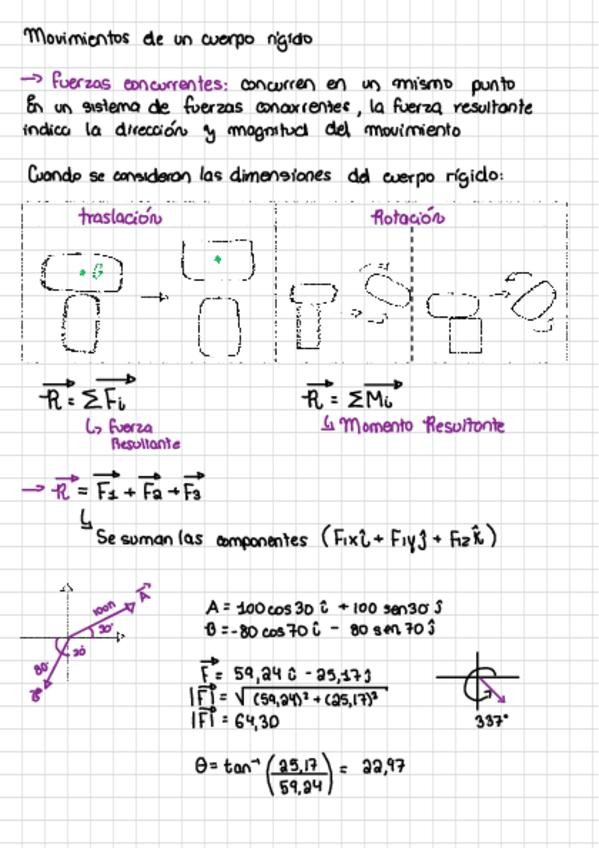 Movimientos de un cuerpo rígido
→ Fuerzas concurrentes: concurren en un mismo punto
En un sistema de fuerzas concurrentes, la fuerza resultante
indica la dirección y magnitud del movimiento
Cuando se consideran las dimensiones del cuerpo rígido:
traslación
Rotación
G
R = ΣFi
↳ Fuerza
Resultante
R = ΣMi
↳ Momento Resultante
→ R = F1 + F2 + F3
↳ Se suman las componentes (F1xî + F1yĵ + F1zk̂)
100n
A
30°
80
B
A = 100 cos 30 î + 100 sen 30 ĵ
B = -80 cos 70 î - 80 sen 70 ĵ
F = 59,24 î - 25,17 ĵ
|F| = √(59,24)² + (25,17)²
|F| = 64,30
337°
θ = tan⁻¹ (25,17/59,24) = 22,97